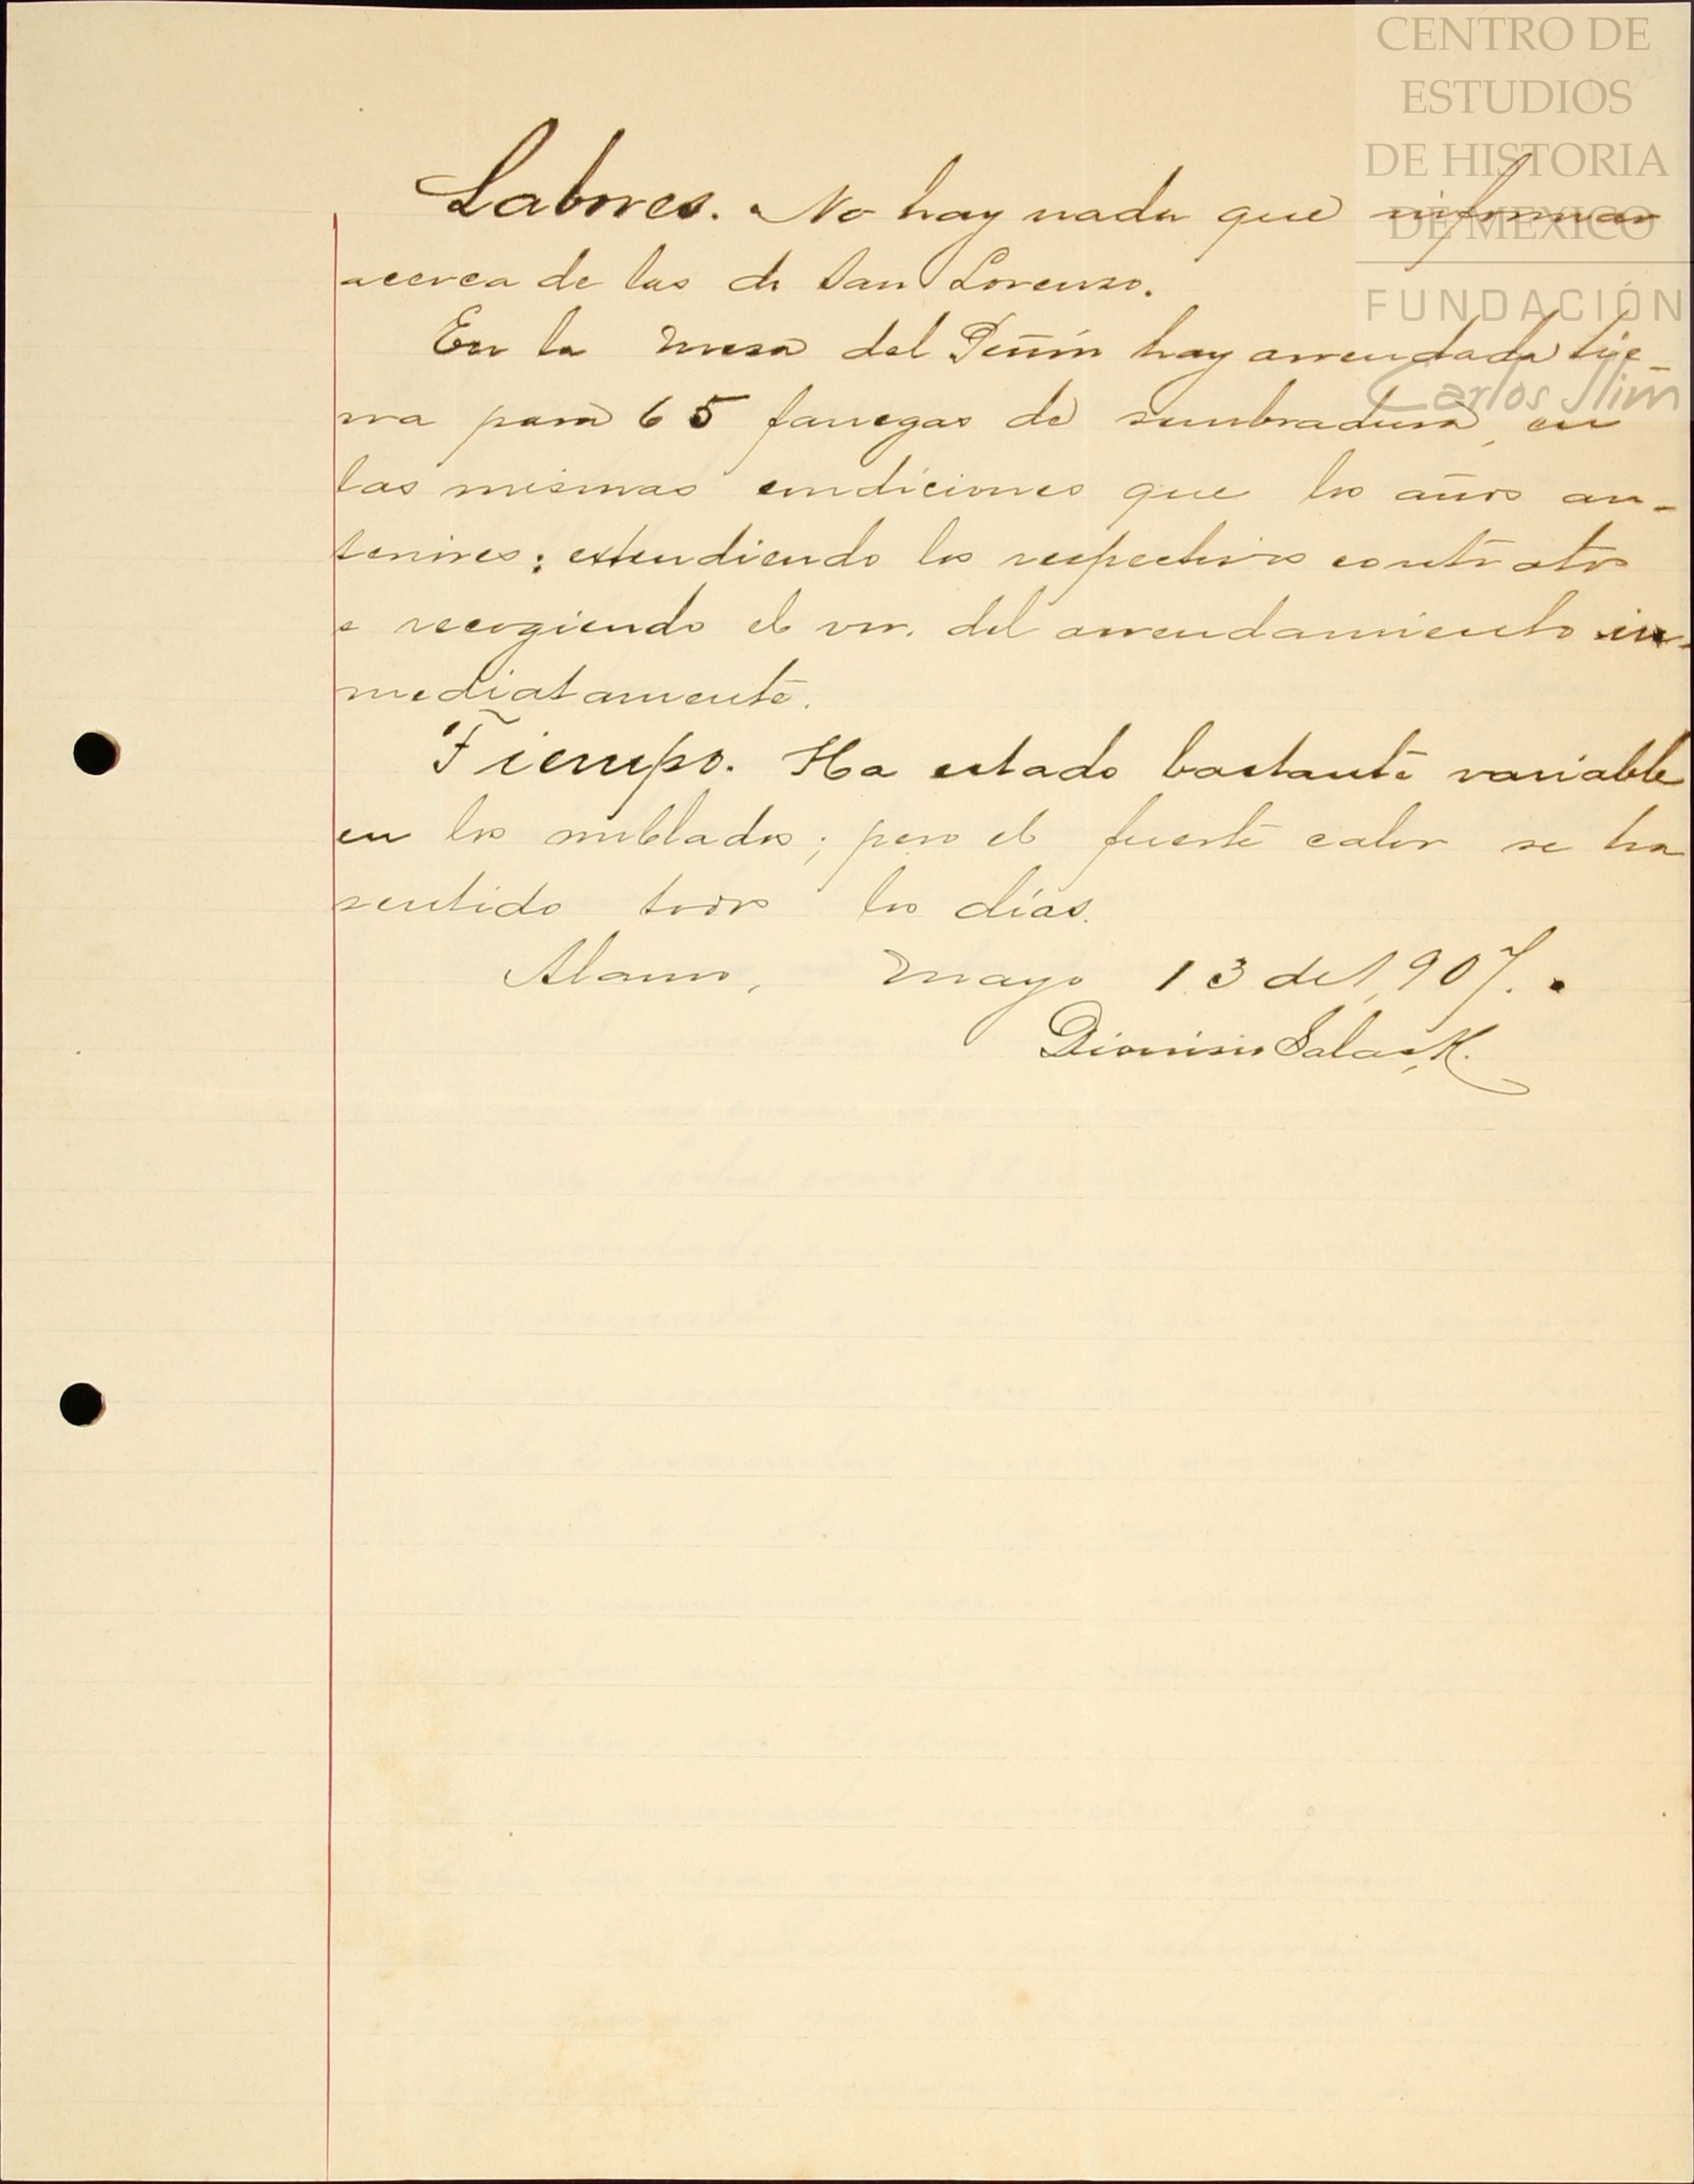 CENTRO DE
ESTUDIOS
DE HISTORIA
DE MEXICO
FUNDACIÓN
Carlos Slim
Labores. No hay nada que informar
acerca de las de San Lorenzo.
En la mesa del Peñón hay arrendada tie-
rra para 65 fanegas de sembradura, en
las mismas condiciones que los años an-
teriores; extendiendo los respectivos contratos
e recogiendo el vr. del arrendamiento in-
mediatamente.
Tiempo. Ha estado bastante variable
en los nublados; pero el fuerte calor se ha
sentido todos los días.
Alamo, mayo 13 de 1,907.
Dionisio Salas K.